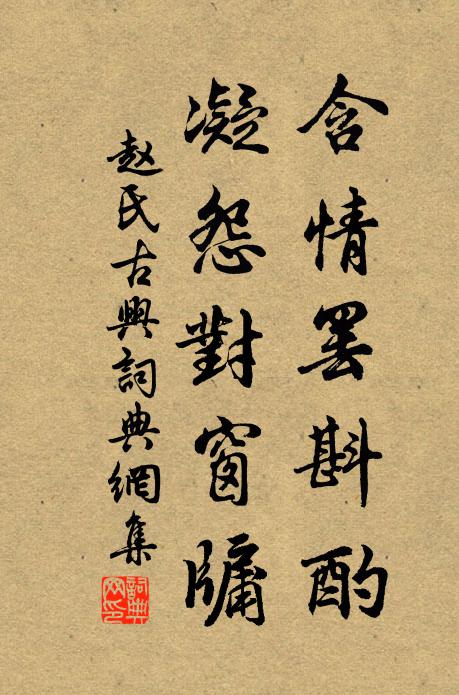 含情罢斟酌
凝怨對窗牖
赵氏古典詞典網集
詞典网印